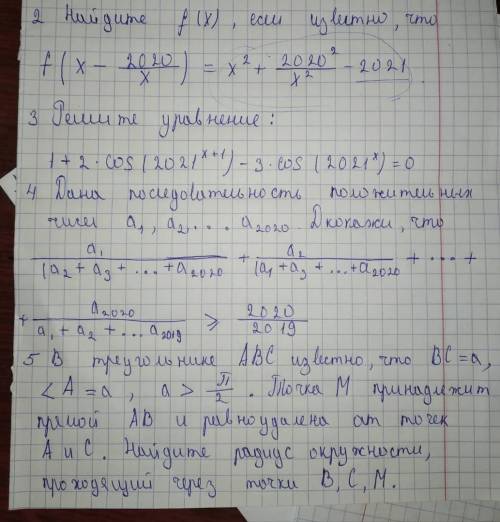 2 Найдите f(x), если известно, что
f(x - 2020/x) = x² + 2020²/x² - 2021
3 Решите уравнение:
1 + 2·cos(2021^(x+1)) - 3·cos(2021^x) = 0
4 Дана последовательность положительных
чисел a₁, a₂, ... a₂₀₂₀. Дкокажи, что
a₁/(a₂ + a₃ + ... + a₂₀₂₀ + a₂/(a₁ + a₃ + ... + a₂₀₂₀ + ... +
+ a₂₀₂₀/a₁ + a₂ + ... a₂₀₁₉ ⩾ 2020/2019
5 В треугольнике ABC известно, что BC = a,
<A = a, a > π/2. Точка M принадлежит
прямой AB и равноудалена от точек
A и C. Найдите радиус окружности,
проходящий через точки B, C, M.